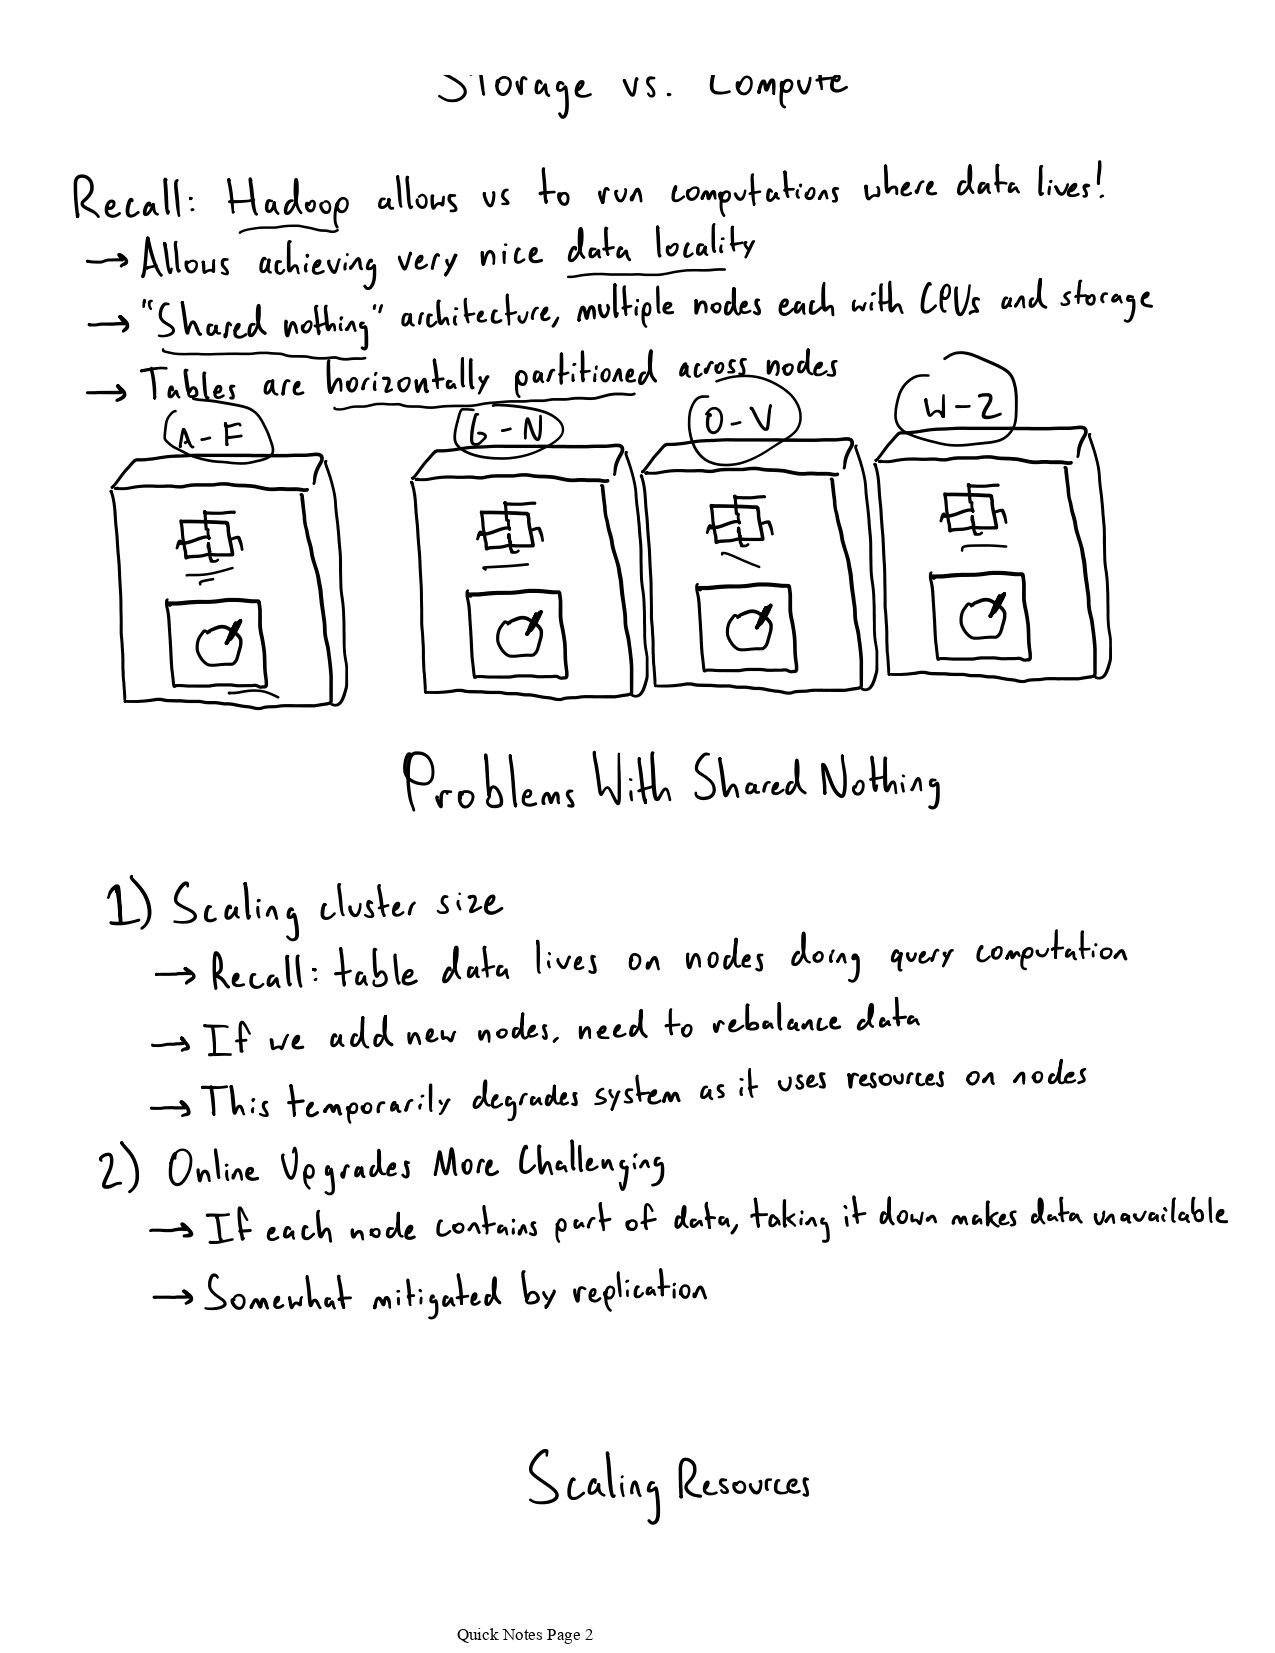 Storage vs. Compute
Recall: Hadoop allows us to run computations where data lives!
→ Allows achieving very nice data locality
→ "Shared nothing" architecture, multiple nodes each with CPUs and storage
→ Tables are horizontally partitioned across nodes
A-F G-N O-V W-Z
Problems With Shared Nothing
1) Scaling cluster size
→ Recall: table data lives on nodes doing query computation
→ If we add new nodes, need to rebalance data
→ This temporarily degrades system as it uses resources on nodes
2) Online Upgrades More Challenging
→ If each node contains part of data, taking it down makes data unavailable
→ Somewhat mitigated by replication
Scaling Resources
Quick Notes Page 2